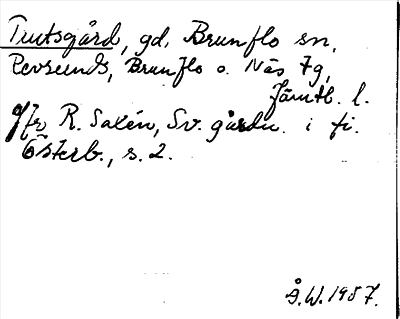 Tuutsgård, gd, Brunflo sn,
Revsunds, Brunflo o. Näs tg,
Jämtl. l.
Jfr R. Saxén, Sv. gårdn. i fi.
Österb., s. 2.
Å.W. 1957.